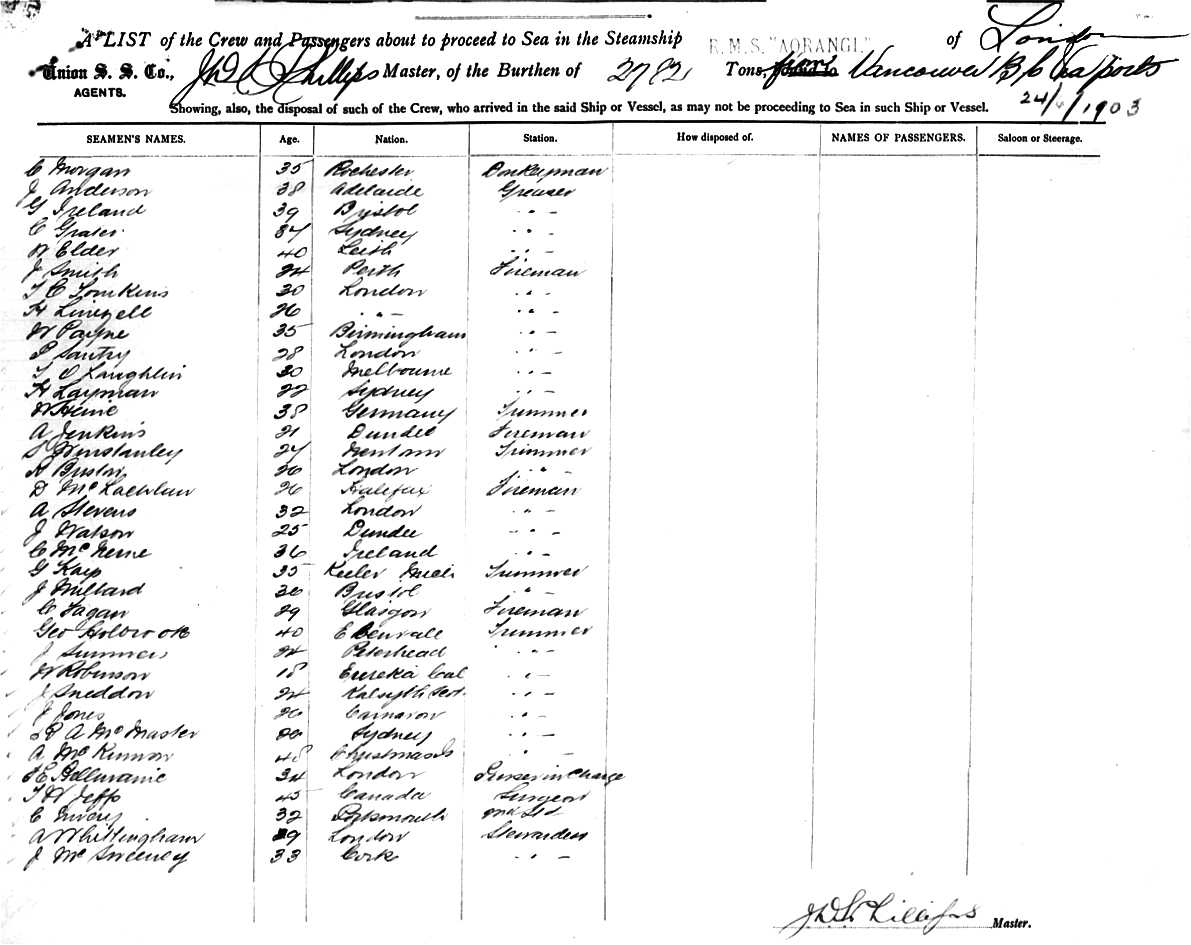 A LIST of the Crew and Passengers about to proceed to Sea in the Steamship R.M.S. "AORANGI." of London
Union S. S. Co., Jno S Phillips Master, of the Burthen of 2782 Tons, from Vancouver B C via ports
AGENTS.
Showing, also, the disposal of such of the Crew, who arrived in the said Ship or Vessel, as may not be proceeding to Sea in such Ship or Vessel. 24/ /1903
SEAMEN'S NAMES. Age. Nation. Station. How disposed of. NAMES OF PASSENGERS. Saloon or Steerage.
C Morgan 35 Rochester Donkeyman
J Anderson 38 Adelaide Greaser
G Ireland 39 Bristol " 
C 34 Sydney "
W Elder 40 Leith "
J Smith 24 Perth Fireman
T C Tomkins 30 London "
H Linezell 26 " "
W Payne 35 Birmingham "
P Santry 28 London "
T O Laughlin 30 Melbourne "
H Layman 22 Sydney "
W Heine 38 Germany Trimmer
A Jenkins 21 Dundee Fireman
Winstanley 24 Trimmer
Buston 26 London "
D McLachlan 26 Halifax Fireman
A Stevens 32 London "
J Watson 25 Dundee "
C McNerne 36 Ireland "
G Kaip 25 Keeler Trimmer
J Millard 26 Bristol "
C Fagan 29 Glasgow Fireman
Geo Holbrook 40 Trimmer
J Summers 24 Peterhead "
W Robinson 18 Eureka Cal "
J Sneddon 24 Kalsyth Scot "
J Jones 26 Carnavon "
R A McMaster 20 Sydney "
A McKinnon 48 "
34 London Purser in Charge
T W Jeffs 45 Canada Surgeon
C 32 Portsmouth
A Whittingham 29 London Stewardess
J McSweeney 33 Cork "
Jno S Phillips Master.